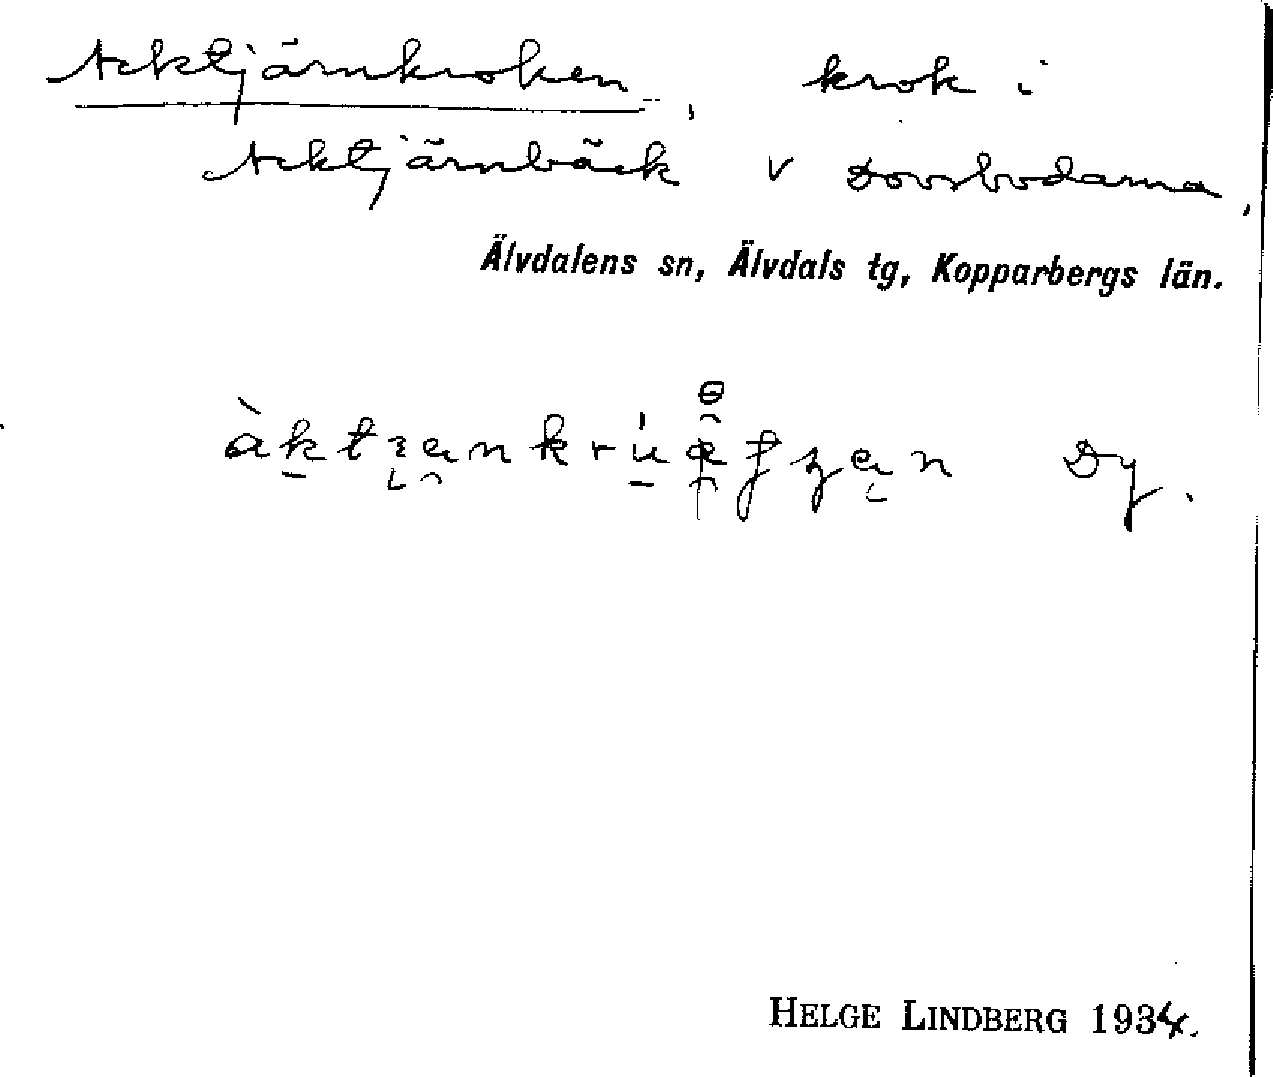 Acktjärnkroken, krok i
Acktjärnbäck v Dovsbodarna,
Älvdalens sn, Älvdals tg, Kopparbergs län.
Dy.
HELGE LINDBERG 1934.